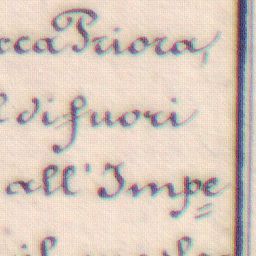 cca Priora,
di fuori
all' Impe=